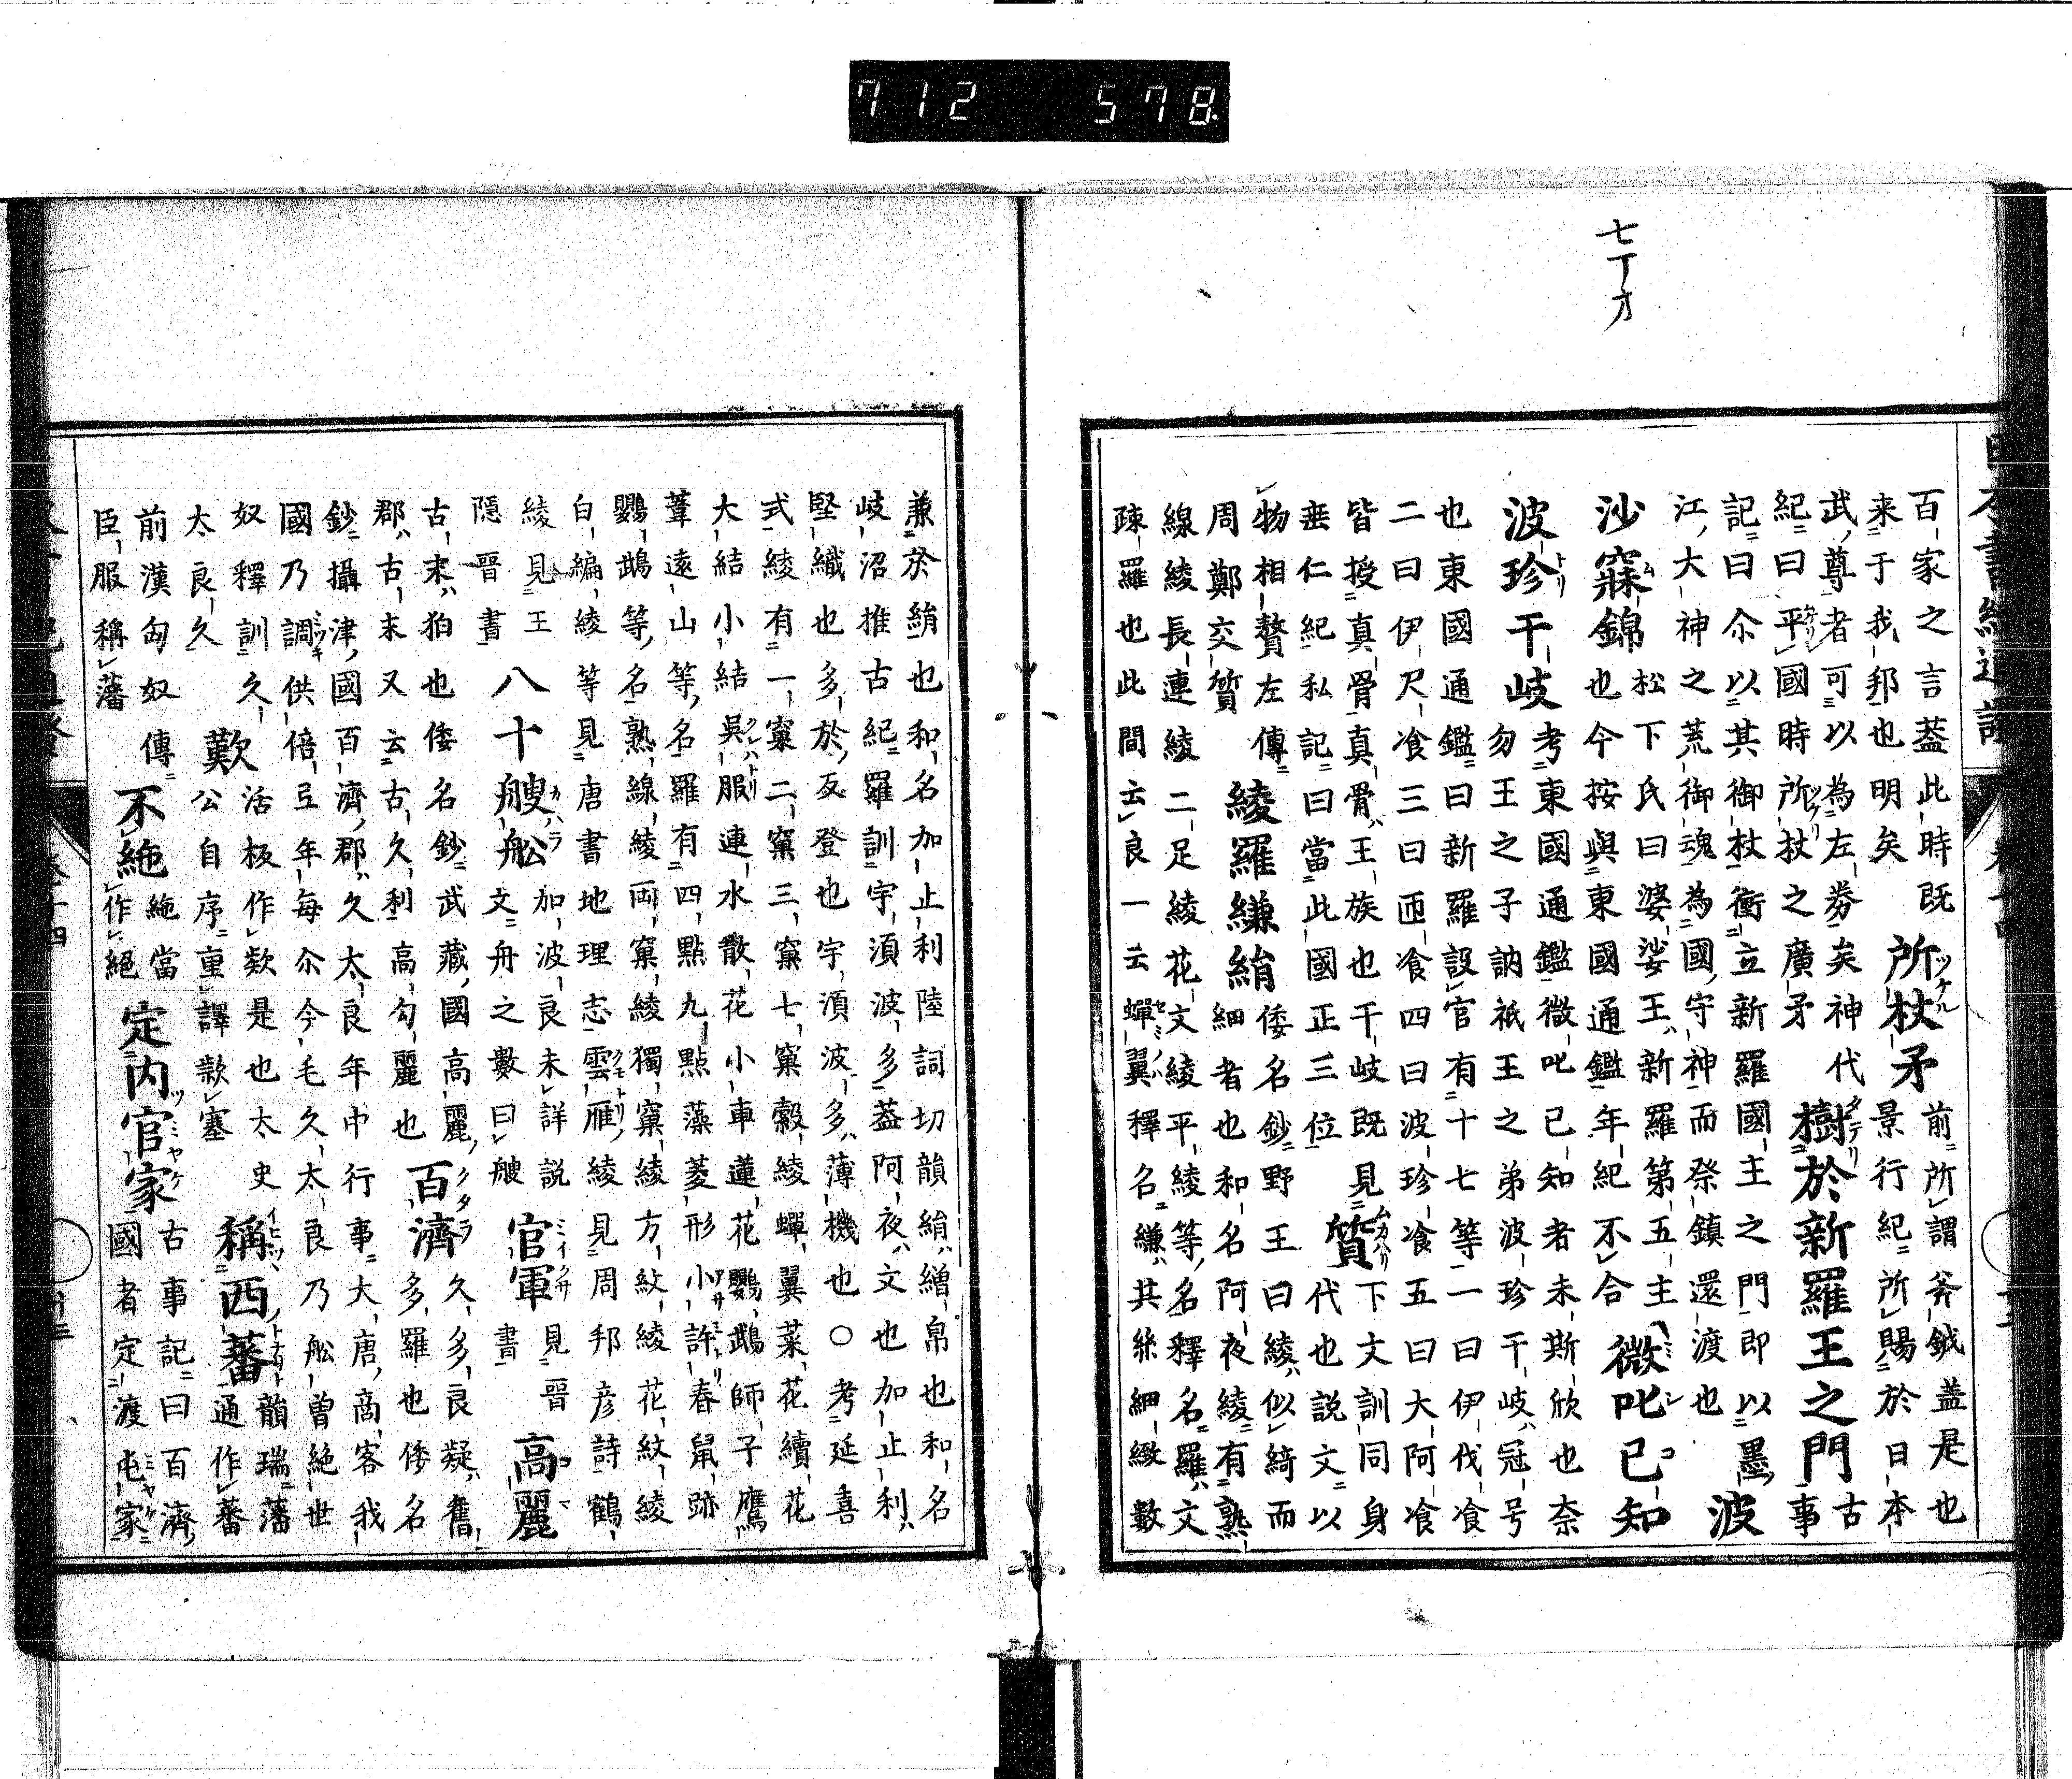 712 578
七丁オ
百家之言葢此時既
来于我邦也明矣
所杖矛
前所謂斧鉞盖是也
景行紀所賜於日本
武尊者可以為左券矣神代
紀曰平國時所杖之廣矛
樹於新羅王之門
古事
記曰尒以其御杖衝立新羅國主之門即以墨
江大神之荒御魂為國守神而祭鎮還渡也
波
沙寐錦
松下氏曰婆娑王新羅第五主
也今按與東國通鑑年紀不合
微叱已知
波珍干岐
考東國通鑑微叱已知者未斯欣也奈
勿王之子訥祇王之弟波珍干岐冠号
也東國通鑑曰新羅設官有十七等一曰伊伐飡
二曰伊尺飡三曰迊飡四曰波珍飡五曰大阿飡
皆授真骨真骨王族也干岐既見
質
下文訓同身
垂仁紀私記曰當此國正三位
代也説文以
物相贅左傳
周鄭交質
綾羅縑絹
倭名鈔野王曰綾似綺而
細者也和名阿夜綾有熟
線綾長連綾二足綾花文綾平綾等名釋名羅文
疎羅也此間云良一云蟬翼釋名縑其絲細緻數
兼於絹也和名加止利陸詞切韻絹繒帛也和名
岐沼推古紀羅訓宇須波多葢阿夜文也加止利
堅織也多於反登也宇須波多薄機也○考延喜
式綾有一窠二窠三窠七窠縠綾蟬翼菜花續花
大結小結呉服連水散花小車蓮花鸚鵡師子鷹
葦遠山等名羅有四點九點藻菱形小許春鼠跡
鸚鵡等名熟線綾両窠綾獨窠綾方紋綾花紋綾
白編綾等見唐書地理志雲雁綾見周邦彦詩鶴
綾見王
隱晋書
八十艘舩
加波良未詳説
文舟之數曰艘
官軍
見晋
書
高麗
古末狛也倭名鈔武藏國高麗
郡古末又云古久利高勾麗也
百濟
久多良疑舊
多羅也倭名
鈔攝津國百濟郡久太良年中行事大唐商客我
國乃調供倍弖年毎尒今毛久太良乃舩曽絶世
奴釋訓久
太良久
歎
活板作歎是也太史
公自序重譯款塞
稱西蕃
韻瑞藩
通作蕃
前漢匈奴傳
臣服稱藩
不絁
絁當
作絕
定内官家
古事記曰百濟
國者定渡屯家